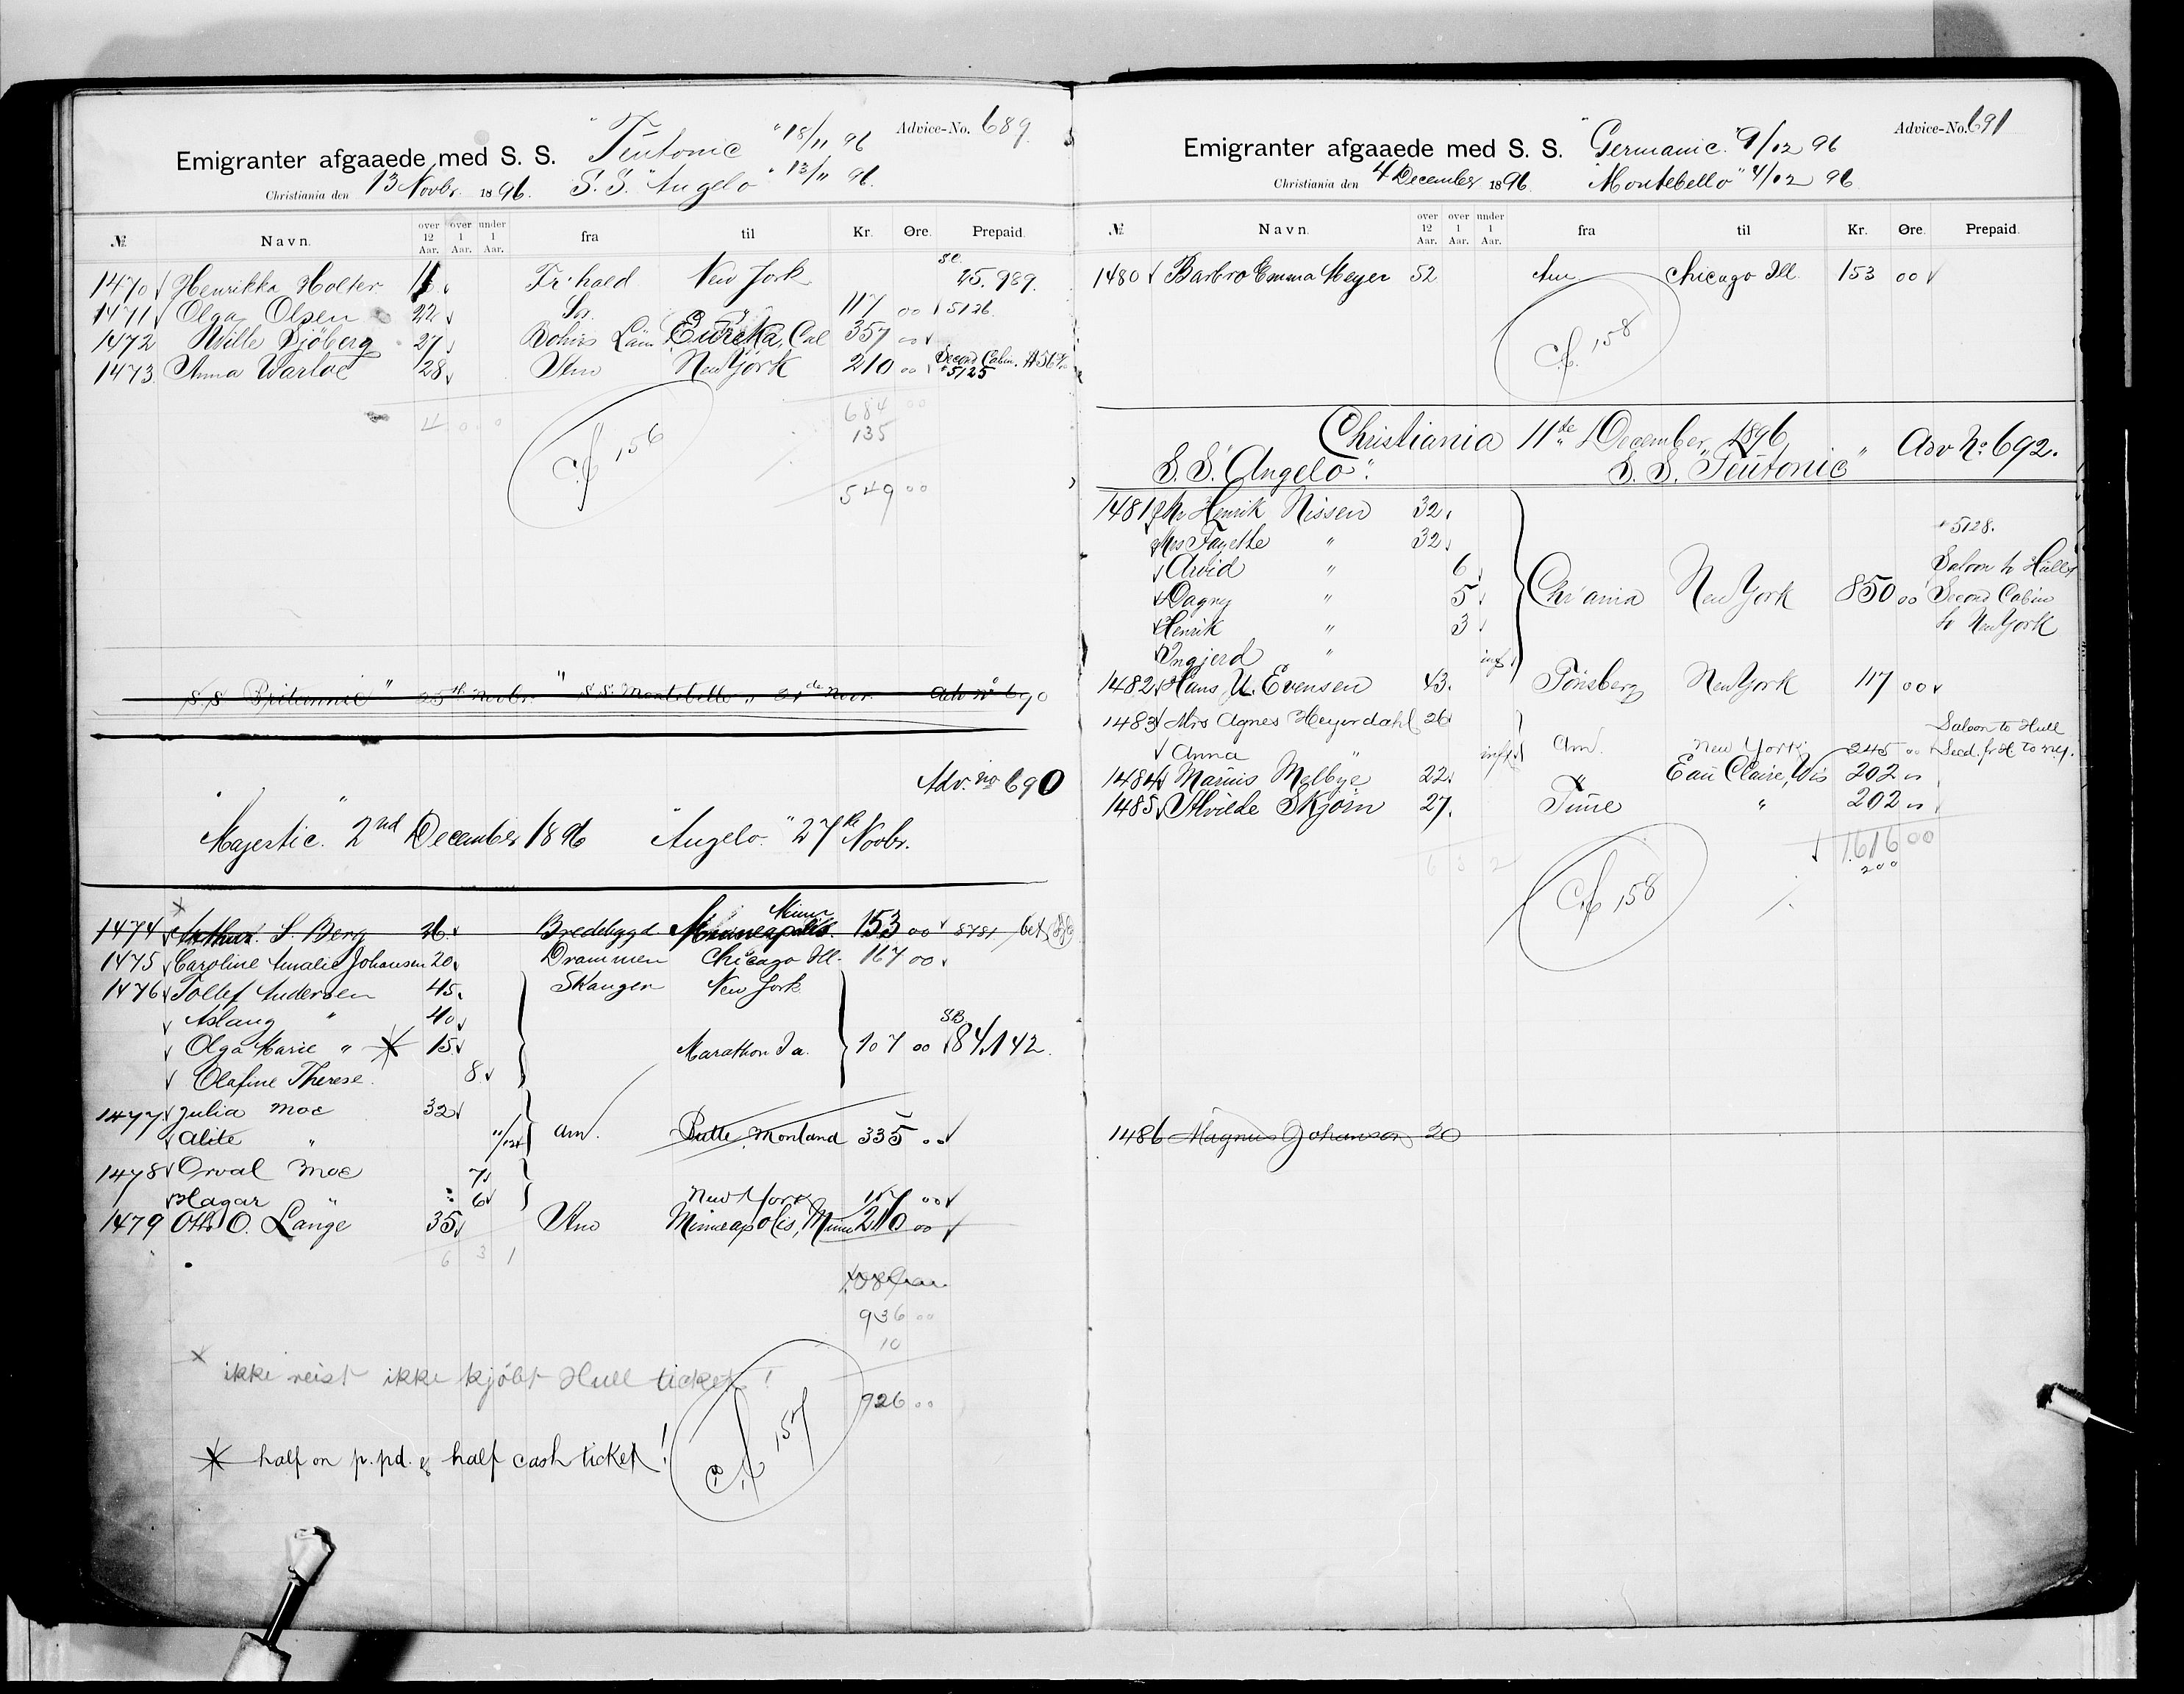 Emigranter afgaaede med S. S. "Teutonic" 18/11 96 Advice-No. 689
Christiania den 13 Novbr. 1896. S. S. "Angelo" 13/11 96.
№ Navn. over 12 Aar. over 1 Aar. under 1 Aar. fra til Kr. Øre. Prepaid.
1470 Henrikka Holter Fr'hald New York 25.989.
1471 Olga Olsen 22 117 00 5126
1472 Wille Sjöberg 27 Bohus Län Eureka, Cal 357 00
1473 Anna Warloe 28 Ano New York 210 00 Second Cabin. 5125
4 0 0 684 00
135
cf 156
549 00
S/S Britannic" 25th Novbr. "S.S. Montebello" 21de Novr. Adv no 690
Adv. no 690
"Majestic" 2nd December 1896 "Angelo" 27de Novbr.
1474 Arthur S. Berg 26 Bredebygd Minneapolis Minn 153 00 8781 bet
1475 Caroline Amalie Johansen 20 Drammen Chicago Ill. 167 00
1476 Tollef Andersen 45 Skauger New York
Aslaug " 40
Olga Marie " 15 Marathon Ia. 107 00 84142.
Olafine Therese 8
1477 Julia Moe 32
Alite " 11/12 Am. Butte, Montand 335 00
1478 Orval Moe 7
Hagar " 6 New York 117 00
1479 Otto O. Lange 35 Ano Minneapolis, Minn 210 00
6 3 1
1089
936 00
10
× ikke reist ikke kjöbt Hull ticket!
926 00
cf 157
half on p.pd. & half cash ticket!
Emigranter afgaaede med S. S. "Germanic" 9/12 96 Advice-No. 691
Christiania den 4 December 1896. "Montebello" 4/12 96
№ Navn. over 12 Aar. over 1 Aar. under 1 Aar. fra til Kr. Øre. Prepaid.
1480 Barbro Emma Meyer 52 Am Chicago Ill 153 00
cf. 158
Christiania 11te December 1896, Adv No: 692.
S. S. "Angelo". S. S. "Teutonic"
1481 Mr Henrik Nissen 32
Mrs Fayette " 32 5128.
Arvid " 6 Saloon to Hull
Dagny " 5 Chr'ania New York 850 00 Second Cabin
Henrik " 3 to New York
Ingjerd " inf
1482 Hans U. Evensen 43. Tönsberg New York 117 00
1483 Mrs Agnes Heyerdahl 26 Saloon to Hull
Anna " inft Am. New York 245 00 Secd. fr H to N.Y.
1484 Marius Melbye 22 " Eau Claire, Wis 202 "
1485 Alvilde Skjörn 27. Tune " 202 "
6 3 2 1616 00
200
cf 158
1486 Magnus Johanson 20